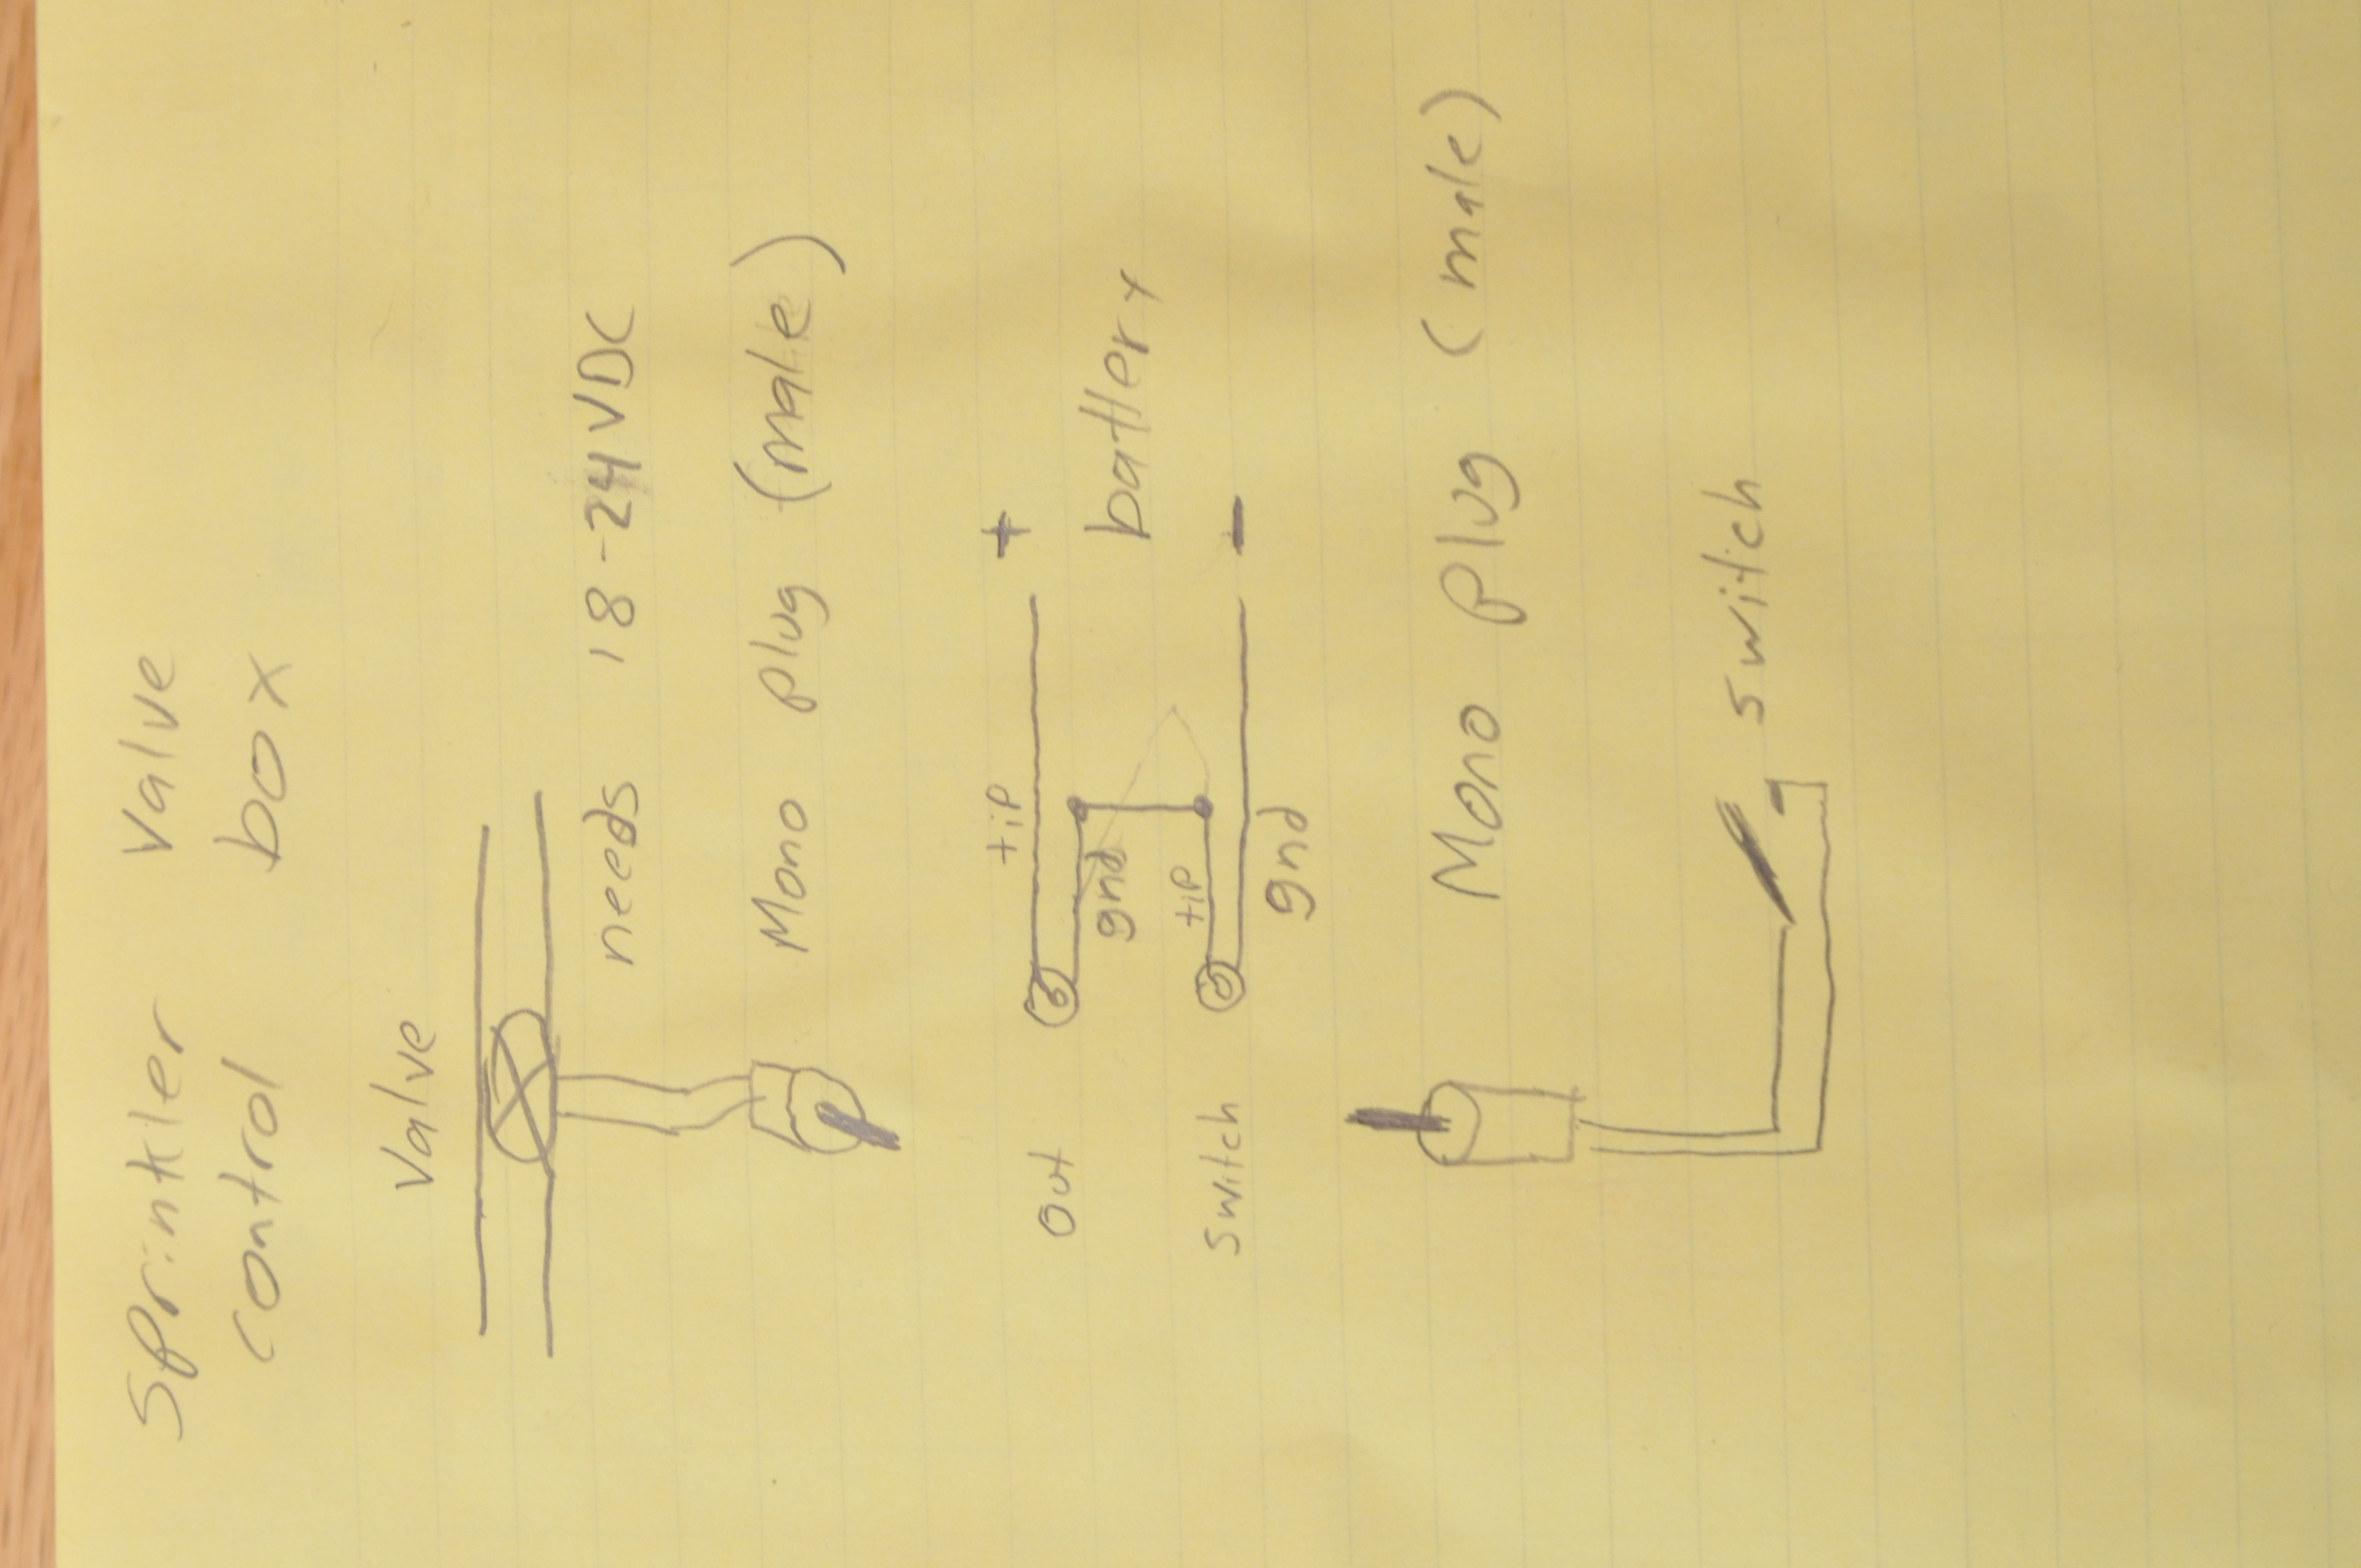 Sprinkler Valve
control box
Valve
needs 18-24VDC
Mono plug (male)
tip +
Out
gnd
battery
tip
switch
gnd -
Mono plug (male)
switch